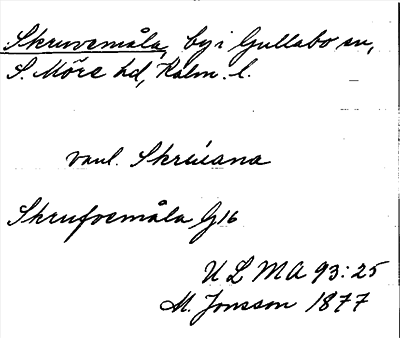 Skruvemåla, by i Gullabo sn,
S. Möre hd, Kalm. l.
vanl.
Skrufvemåla G16
U L M A 93:25
M. Jonsson 1877